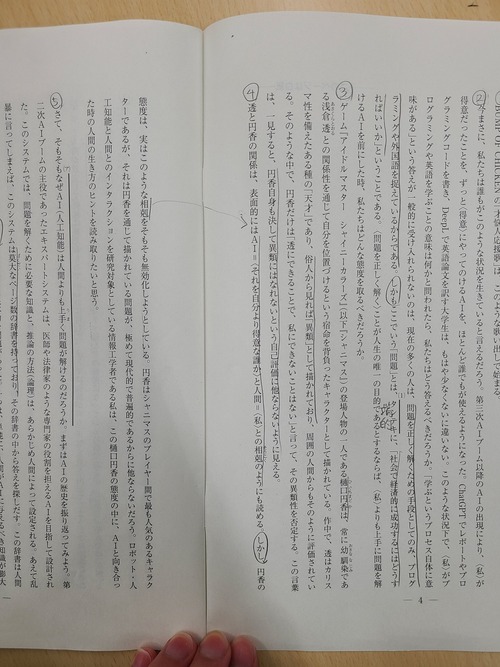 ② 今まさに、私たちは誰もがこのような状況を生きていると言えるだろう。第三次AIブーム以降のAIの出現により、〈私〉が
得意だったことを、ずっと〈得意〉にやってのけるAIを、ほとんど誰でもが使えるようになった。ChatGPTでレポートやプロ
グラミングコードを書き、DeepLで英語論文を訳す大学生は、もはや少なくないに違いない。このような状況下で、〈私〉がプ
ログラミングや英語を学ぶことの意味は何かと問われたら、私たちはどう答えるべきだろうか。「学ぶというプロセス自体に意
味がある」という答えが一般的に受け入れられないのは、現在の多くの人は、問題を正しく解くための手段としてのみ、プログ
ラミングや外国語を捉えているからである。しかもここでいう「問題」とは、タンテキに、「社会で経済的に成功するにはどうす
ればいいか」ということである。〈問題を正しく解く〉ことが人生の唯一の目的であるとするならば、〈私〉よりも上手に問題を解
けるAIを前にした時、私たちはどんな態度を取るべきだろうか。
③ ゲーム『アイドルマスター シャイニーカラーズ』（以下『シャニマス』）の登場人物の一人である樋口円香は、常に幼馴染であ
る浅倉透との関係性を通じて自分を位置づけるという宿命を背負ったキャラクターとして描かれている。作中で、透はカリス
マ性を備えたある種の「天才」であり、俗人から見れば「異類」として描かれており、周囲の人間からもそのように評価されてい
る。そのような中で、円香だけは「透にできることで、私にできないことはない」と言って、その異類性を否定する。この言葉
は、一見すると、円香自身も決して異類にはなれないという自己評価に他ならないように見える。
④ 透と円香の関係は、表面的にはAI=〈それを自分より得意な誰か〉と人間=〈私〉との相剋のようにも読める。しかし、円香の
態度は、実はこのような相剋をそもそも無効化しようとしている。円香はシャニマスのプレイヤー間で最も人気のあるキャラク
ターであるが、それは円香を通じて描かれている問題が、極めて現代的で普遍的であるからに他ならないだろう。ロボット・人
工知能と人間とのインタラクションを研究対象としている情報工学者である私は、この樋口円香の態度の中に、AIと向き合っ
た時の人間の生き方のヒントを読み取りたいと思う。
⑤ さて、そもそもなぜAI（人工知能）は人間よりも上手く問題が解けるのだろうか。まずはAIの歴史を振り返ってみよう。第
二次AIブームの主役であったエキスパートシステムは、医師や法律家のような専門家の役割を担えるAIを目指して設計され
た。このシステムでは、問題を解くために必要な知識と、推論の方法（論理）は、あらかじめ人間によって設定される。あえて乱
暴に言ってしまえば、このシステムは莫大なページ数の辞書を持っており、その辞書の中から答えを探しだす。この辞書は人間
― 4 ―